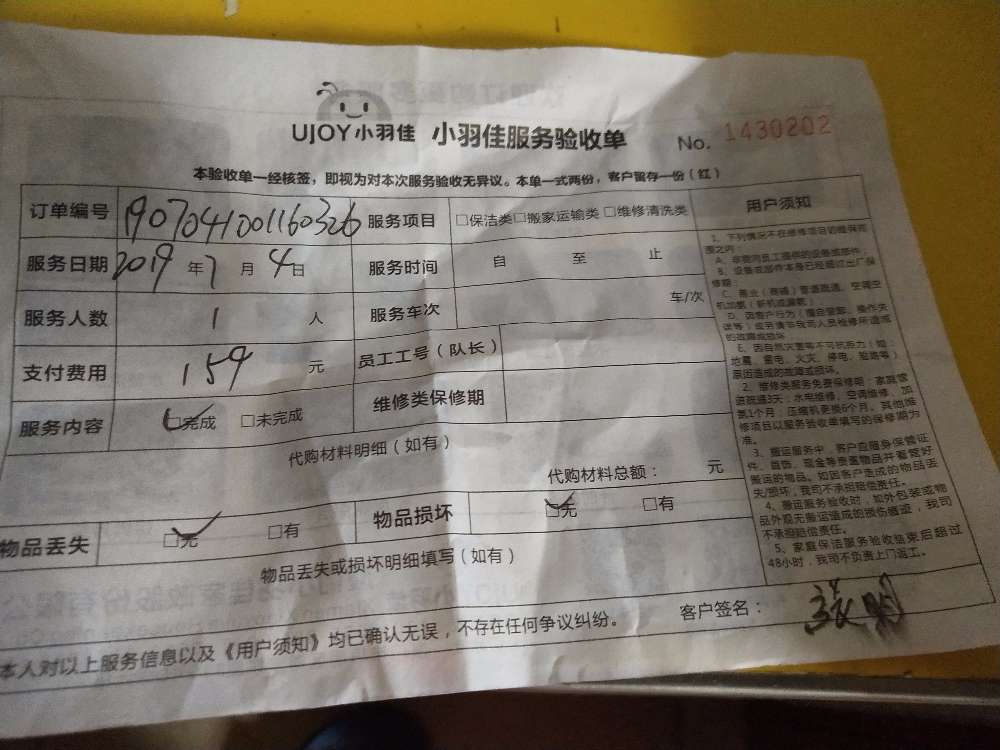 UJOY小羽佳 小羽佳服务验收单 No. 1430202
本验收单一经核签，即视为对本次服务验收无异议。本单一式两份，客户留存一份（红）
订单编号 190704100116032б 服务项目 □保洁类□搬家运输类□维修清洗类
服务日期 2019年7月4日 服务时间 自 至 止
服务人数 1 人 服务车次 车/次
支付费用 159 元 员工工号（队长）
服务内容 □完成 □未完成 维修类保修期
代购材料明细（如有）
代购材料总额： 元
物品丢失 □无 □有 物品损坏 □无 □有
物品丢失或损坏明细填写（如有）
本人对以上服务信息以及《用户须知》均已确认无误，不存在任何争议纠纷。 客户签名：
用户须知
1、下列情况不在维修项目的维保范
围之内：
A、非我司员工提供的设备或部件。
B、设备或部件本身已经超过出厂保
修期
C、商业（商铺）管道疏通，空调空
机加氨（新机或漏氨）
D、因客户行为
的故障或损坏
E、因自然灾害等不可抗拒力（如：
地震、雷电、火灾、停电、短路等）
原因造成的故障或损坏。
2、维修类服务免费保修期：家庭管
道疏通3天；水电维修、空调维修、加
氨1个月；压缩机更换6个月。其他维
修项目以服务验收单填写的保修期为
准。
3、搬运服务中，客户应随身保管证
件、首饰、现金等贵重物品并看管好
搬运的物品。如因客户造成的物品丢
失/损坏，我司不承担赔偿责任。
4、搬运服务验收时，如外包装或物
品外观无搬运造成的损伤痕迹，我司
不承担赔偿责任。
5、家庭保洁服务验收结束后超过
48小时，我司不负责上门返工。